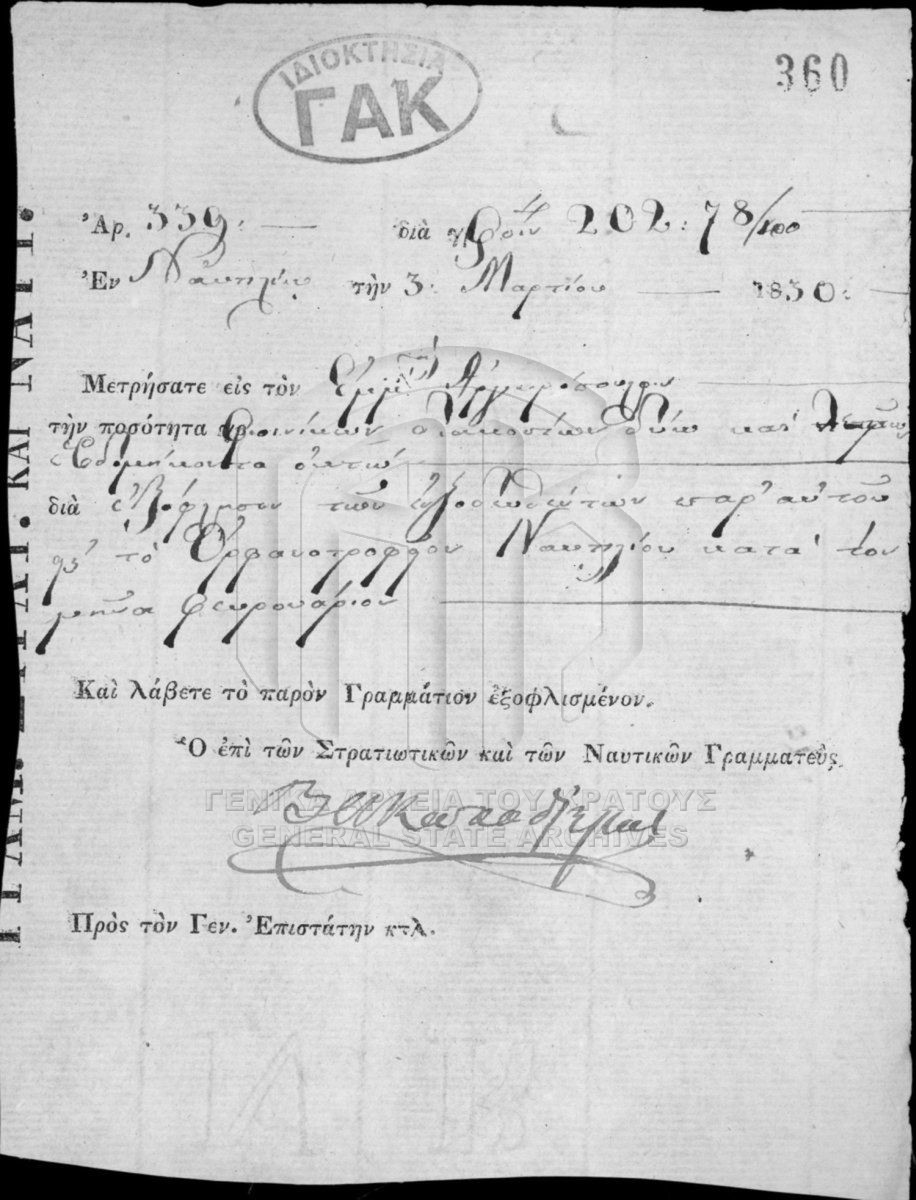 ΙΔΙΟΚΤΗΣΙΑ
ΓΑΚ
360
Ἀρ. 339: διὰ φοίν 202: 78/100
Ἐν Ναυπλίῳ τὴν 3: Μαρτίου 1830:
Μετρήσατε εἰς τὸν Ἐμμ Ἀργυρόπουλον
τὴν ποσότητα φοινίκων διακοσίων δύω καὶ λεπτῶν
ἑβδομήκοντα ὀκτώ
διὰ ἐξόφλησιν τῶν ἐξοδευθέντων παρ' αὐτοῦ
δι' τὸ Ὀρφανοτροφεῖον Ναυπλίου κατὰ τὸν
μῆνα φευρουάριον
Καὶ λάβετε τὸ παρὸν Γραμμάτιον ἐξοφλισμένον.
Ὁ ἐπὶ τῶν Στρατιωτικῶν καὶ τῶν Ναυτικῶν Γραμματεὺς
ΓΕΝΙΚΑ ΑΡΧΕΙΑ ΤΟΥ ΚΡΑΤΟΥΣ
GENERAL STATE ARCHIVES
Πρὸς τὸν Γεν. Ἐπιστάτην κτλ.
ΓΡΑΜ. ΣΤΡΑΤ. ΚΑΙ ΝΑΥΤ.